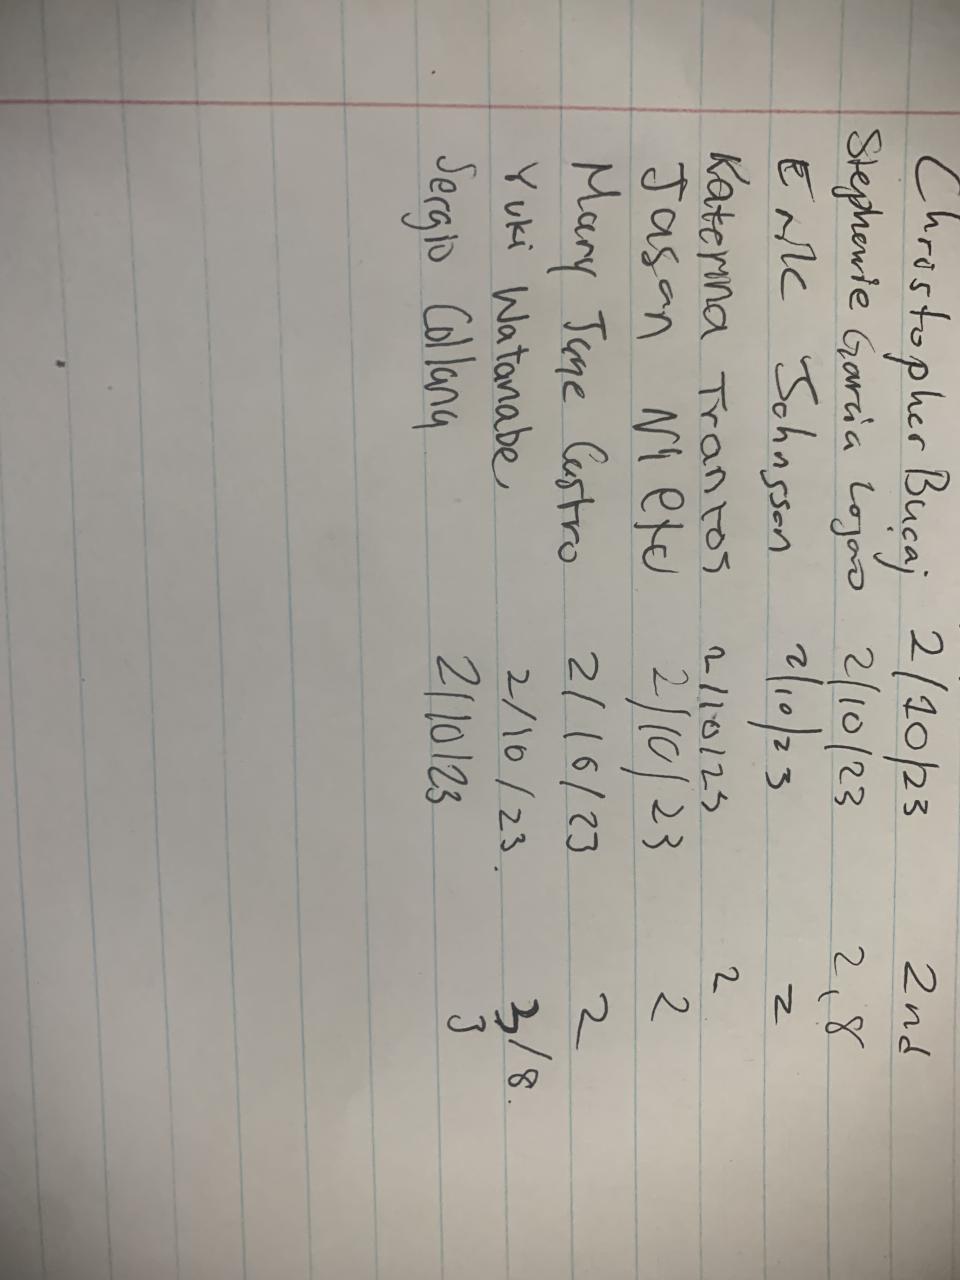 Christopher Bucaj 2/10/23 2nd
Stephanie Garcia Lozano 2/10/23 2,8
Eric Johnsson 2/10/23 2
Katerina Trantos 2/10/23 2
Jason 2/10/23 2
Mary Jane Castro 2/16/23 2
Yuki Watanabe 2/10/23. 3/8.
Sergio Collana 2/10/23 3